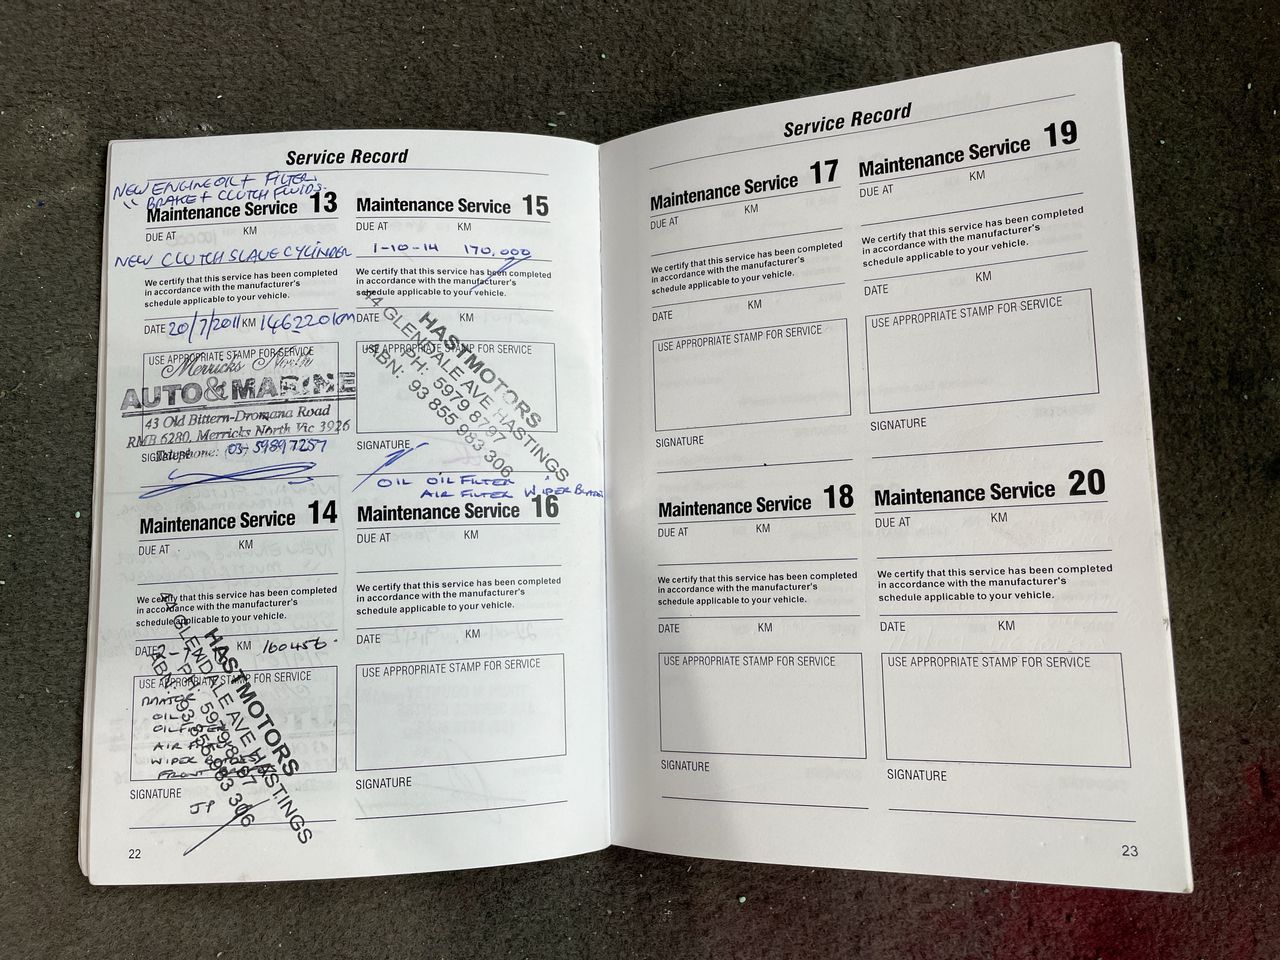 Service Record
NEW ENGINE OIL + FILTER
" BRAKE + CLUTCH FLUIDS.
Maintenance Service 13
DUE AT KM
NEW CLUTCH SLAVE CYLINDER
We certify that this service has been completed
in accordance with the manufacturer's
schedule applicable to your vehicle.
DATE 20/7/2011 KM 146220km
USE APPROPRIATE STAMP FOR SERVICE
Merricks North
AUTO & MARINE
43 Old Bittern-Dromana Road
RMB 6280, Merricks North Vic 3926
Telephone: (03) 59897257
SIGNATURE
Maintenance Service 14
DUE AT KM
We certify that this service has been completed
in accordance with the manufacturer's
schedule applicable to your vehicle.
DATE KM 160456
USE APPROPRIATE STAMP FOR SERVICE
HASTMOTORS
GLENDALE AVE HASTINGS
PH: 5979 8797
ABN: 93 855 983 306
OIL
OIL FILTER
AIR FILTER
WIPER
FRONT
SIGNATURE
JP
22
Maintenance Service 15
DUE AT KM
1-10-14 170,000
We certify that this service has been completed
in accordance with the manufacturer's
schedule applicable to your vehicle.
DATE KM
USE APPROPRIATE STAMP FOR SERVICE
HASTMOTORS
GLENDALE AVE HASTINGS
PH: 5979 8797
ABN: 93 855 983 306
SIGNATURE
OIL OIL FILTER
AIR FILTER WIPER BLADES
Maintenance Service 16
DUE AT KM
We certify that this service has been completed
in accordance with the manufacturer's
schedule applicable to your vehicle.
DATE KM
USE APPROPRIATE STAMP FOR SERVICE
SIGNATURE
Service Record
Maintenance Service 17
DUE AT KM
We certify that this service has been completed
in accordance with the manufacturer's
schedule applicable to your vehicle.
DATE KM
USE APPROPRIATE STAMP FOR SERVICE
SIGNATURE
Maintenance Service 18
DUE AT KM
We certify that this service has been completed
in accordance with the manufacturer's
schedule applicable to your vehicle.
DATE KM
USE APPROPRIATE STAMP FOR SERVICE
SIGNATURE
Maintenance Service 19
DUE AT KM
We certify that this service has been completed
in accordance with the manufacturer's
schedule applicable to your vehicle.
DATE KM
USE APPROPRIATE STAMP FOR SERVICE
SIGNATURE
Maintenance Service 20
DUE AT KM
We certify that this service has been completed
in accordance with the manufacturer's
schedule applicable to your vehicle.
DATE KM
USE APPROPRIATE STAMP FOR SERVICE
SIGNATURE
23